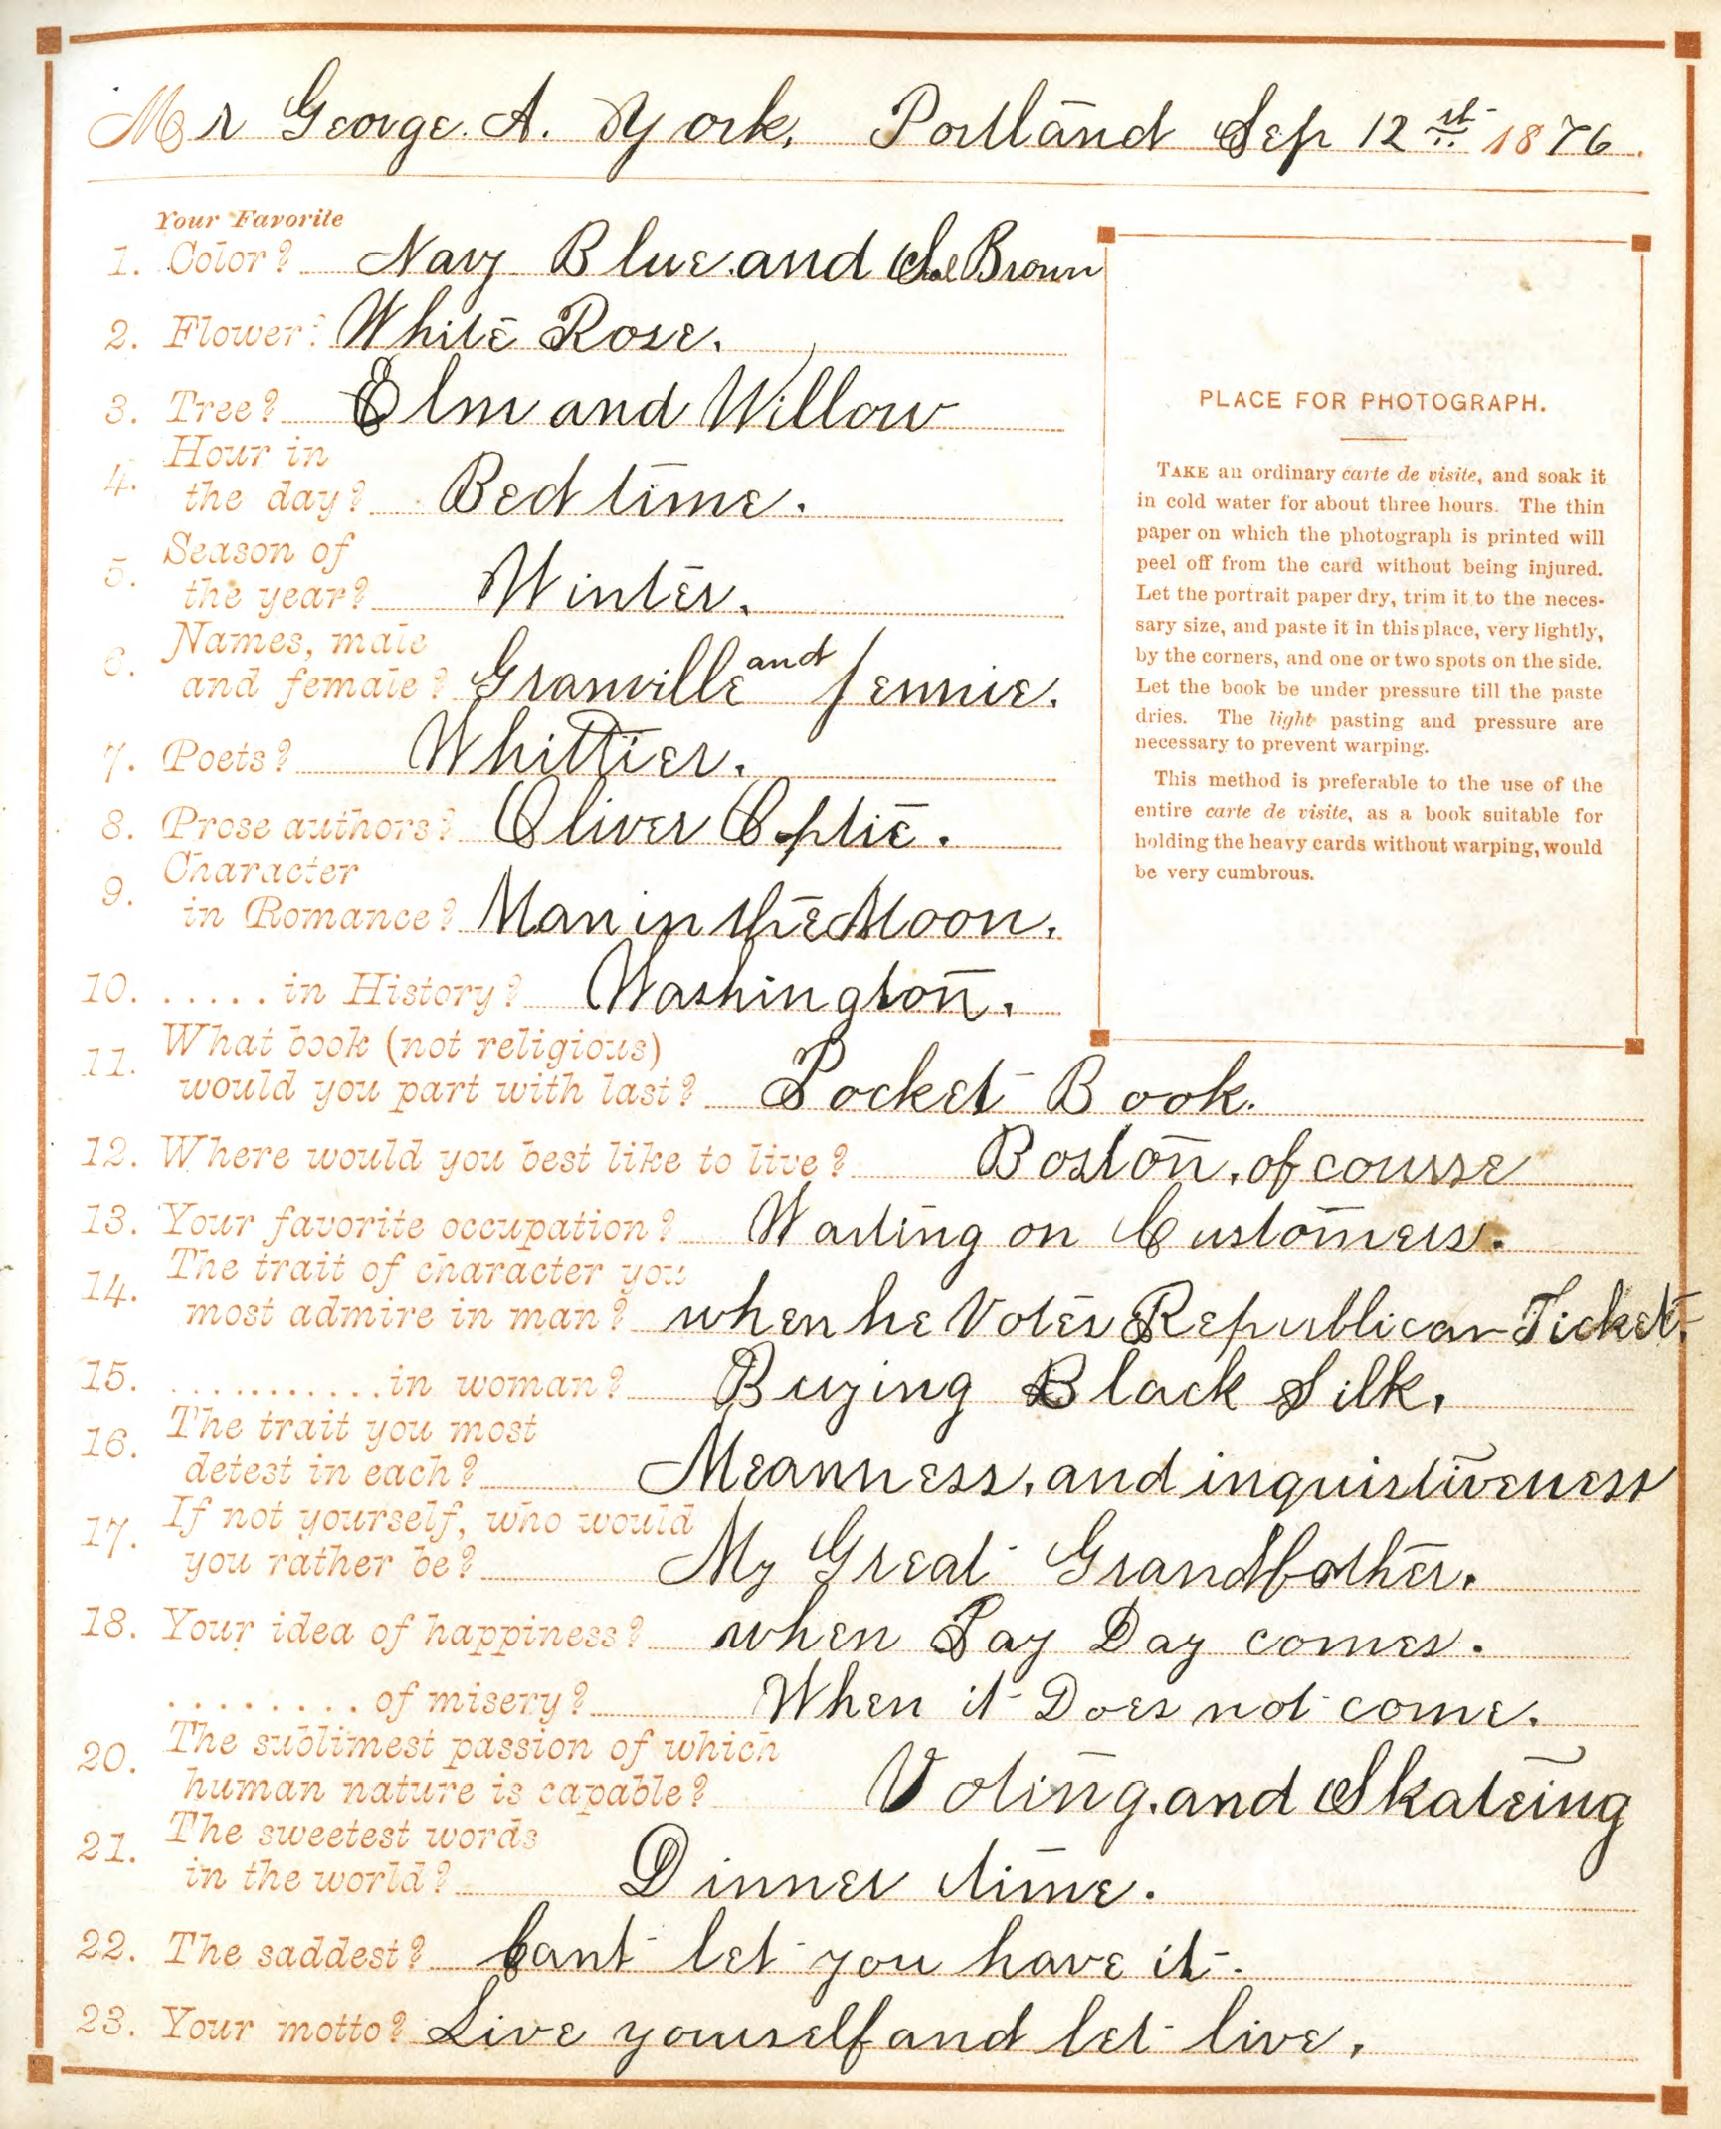 Mr George. A. York. Portland Sep 12st 1876.
Your Favorite
1. Color? Navy Blue and Seal Brown
2. Flower? White Rose.
3. Tree? Elm and Willow
4. Hour in
the day? Bed time.
5. Season of
the year? Winter.
6. Names, male
and female? Granville and Jennie.
7. Poets? Whittier.
8. Prose authors? Oliver Optic.
9. Character
in Romance? Man in the Moon.
10. ..... in History? Washington.
11. What book (not religious)
would you part with last? Pocket Book.
12. Where would you best like to live? Boston, of course
13. Your favorite occupation? Waiting on Customers.
14. The trait of character you
most admire in man? when he Votes Republican Ticket.
15. ........... in woman? Buying Black Silk.
16. The trait you most
detest in each? Meanness, and inquistiveness
17. If not yourself, who would
you rather be? My Great Grandfather.
18. Your idea of happiness? when Pay Day comes.
........ of misery? When it Does not come.
20. The sublimest passion of which
human nature is capable? Voting, and Skateing
21. The sweetest words
in the world? Dinner time.
22. The saddest? Cant let you have it.
23. Your motto? Live yourself and let live.
PLACE FOR PHOTOGRAPH.
TAKE an ordinary carte de visite, and soak it
in cold water for about three hours. The thin
paper on which the photograph is printed will
peel off from the card without being injured.
Let the portrait paper dry, trim it to the neces-
sary size, and paste it in this place, very lightly,
by the corners, and one or two spots on the side.
Let the book be under pressure till the paste
dries. The light pasting and pressure are
necessary to prevent warping.
This method is preferable to the use of the
entire carte de visite, as a book suitable for
holding the heavy cards without warping, would
be very cumbrous.